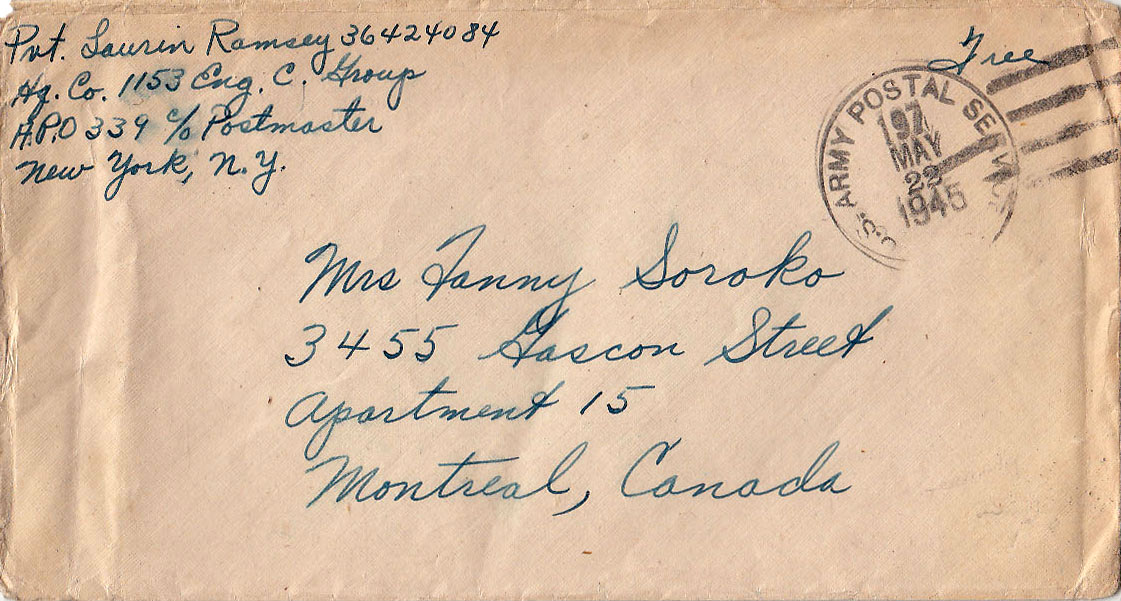 Pvt. Laurin Ramsey 36424084
Hq. Co. 1153 Eng. C. Group
A.P.O 339 c/o Postmaster
New York, N.Y.
Free
U.S. ARMY POSTAL SERVICE
197
MAY
22
1945
Mrs Fanny Soroko
3455 Gascon Street
Apartment 15
Montreal, Canada